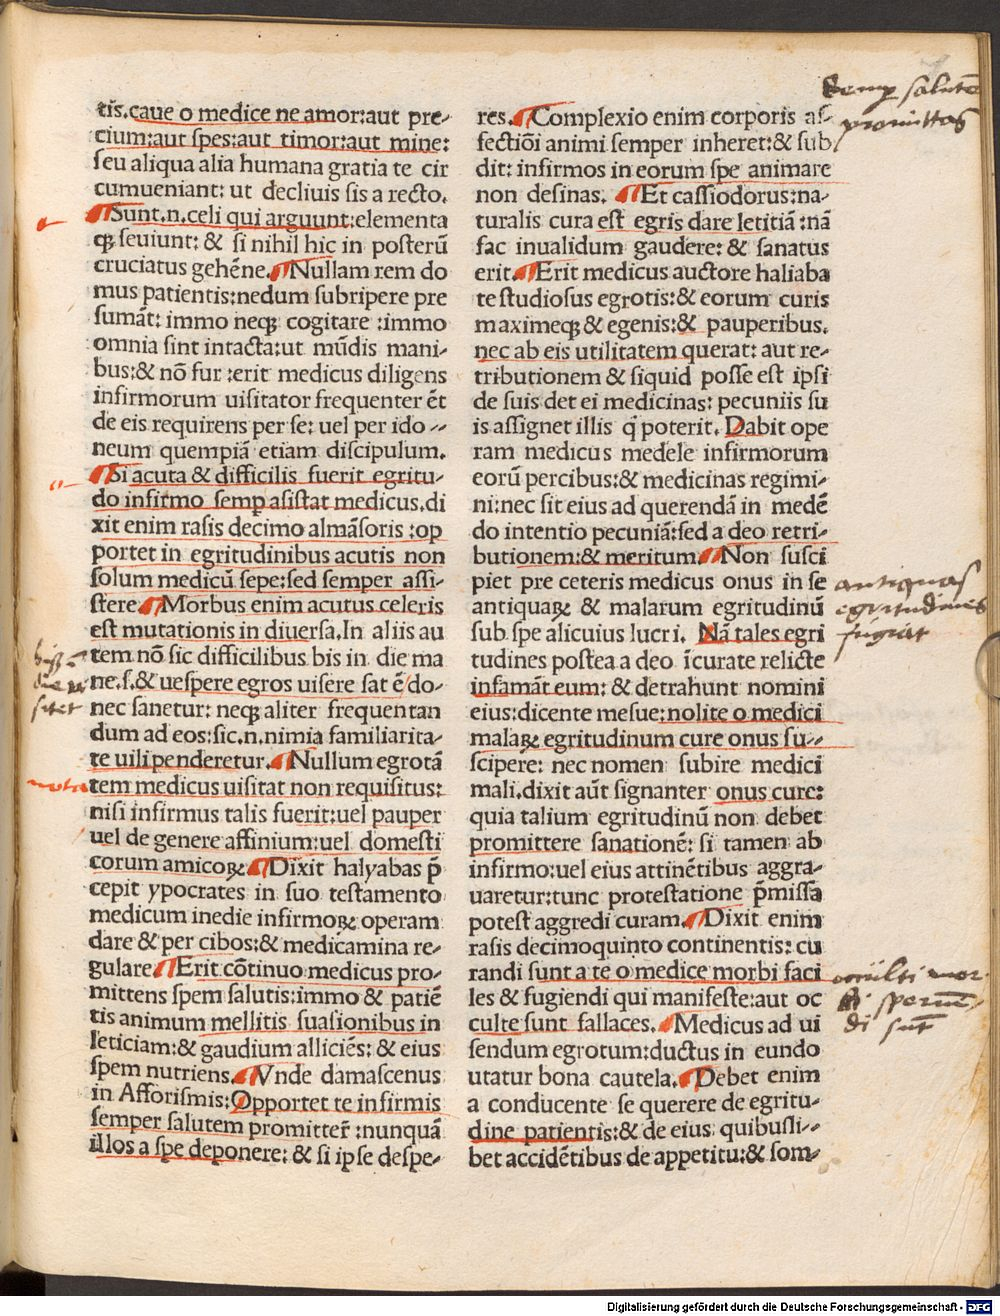 tis.caue o medice ne amor:aut pre⸗
cium:aut spes:aut timor:aut mine:
seu aliqua alia humana gratia te cir
cumueniant: ut decliuis sis a recto.
¶Sunt.n.celi qui arguunt:elementa
qꝫ seuiunt: & si nihil hic in posterũ
cruciatus gehẽne.¶Nullam rem do
mus patientis:nedum subripere pre
sumãt: immo neqꝫ cogitare :immo
omnia sint intacta:ut mũdis mani⸗
bus:& nõ fur :erit medicus diligens
infirmorum uisitator frequenter ẽt
de eis requirens per se: uel per ido⸗⸗
neum quempiã etiam discipulum.
¶Si acuta & difficilis fuerit egritu⸗
do infirmo semꝑ asistat medicus.di
xit enim rasis decimo almãsoris :op
portet in egritudinibus acutis non
solum medicũ sepe:sed semper assi⸗
stere¶Morbus enim acutus celeris
est mutationis in diuersa.In aliis au
tem nõ sic difficilibus bis in die ma
ne.s.& uespere egros uisere sat ẽ do⸗
nec sanetur: neqꝫ aliter frequentan
dum ad eos:sic.n.nimia familiarita⸗
te uilipenderetur.¶Nullum egrotã
tem medicus uisitat non requisitus:
nisi infirmus talis fuerit:uel pauper
uel de genere affinium:uel domesti
corum amicoꝝ.¶Dixit halyabas p̃
cepit ypocrates in suo testamento
medicum inedie infirmoꝝ operam
dare & per cibos:& medicamina re⸗
gulare¶Erit cõtinuo medicus pro⸗
mittens spem salutis:immo & patiẽ
tis animum mellitis suasionibus in
leticiam:& gaudium alliciẽs: & eius
spem nutriens.¶Vnde damascenus
in Afforismis:Opportet te infirmis
semper salutem promitter̃ :nunquã
illos a spe deponere: & si ipse despe⸗
res.¶Complexio enim corporis af⸗
fectiõi animi semper inheret:& sub
dit: infirmos in eorum spe animare
non desinas. ¶Et cassiodorus:na⸗
turalis cura est egris dare letitiã :nã
fac inualidum gaudere: & sanatus
erit.¶Erit medicus auctore haliaba
te studiosus egrotis:& eorum curis
maximeqꝫ & egenis:& pauperibus.
nec ab eis utilitatem querat: aut re⸗
tributionem & siquid posse est ipsi
de suis det ei medicinas: pecuniis su
is assignet illis q̃ poterit. Dabit ope
ram medicus medele infirmorum
eorũ percibus:& medicinas regimi⸗
ni:nec sit eius ad querendã in medẽ
do intentio pecuniã:sed a deo retri⸗
butionem:& meritum.¶Non susci
piet pre ceteris medicus onus in se
antiquaꝝ & malarum egritudinũ
sub spe alicuius lucri. Nã tales egri
tudines postea a deo ĩcurate relicte
infamãt eum: & detrahunt nomini
eius:dicente mesue:nolite o medici
malaꝝ egritudinum cure onus su⸗⸗
scipere: nec nomen subire medici
mali.dixit aũt signanter onus cure:
quia talium egritudinũ non debet
promittere sanationẽ: si tamen ab
infirmo:uel eius attinẽtibus aggra⸗
uaretur:tunc protestatione p̃missa
potest aggredi curam.¶Dixit enim
rasis decimoquinto continentis: cu
randi sunt a te o medice morbi faci
les & fugiendi qui manifeste:aut oc
culte sunt fallaces.¶Medicus ad ui
sendum egrotum:ductus in eundo
utatur bona cautela.¶Debet enim
a conducente se querere de egritu⸗
dine patientis:& de eius quibusli⸗⸗
bet accidẽtibus de appetitu:& som⸗
semꝑ salutẽ
promittas
antiquas
egritudines
fugiat
occulti mor
di sunt
nota
Digitalisierung gefördert durch die Deutsche Forschungsgemeinschaft - DFG